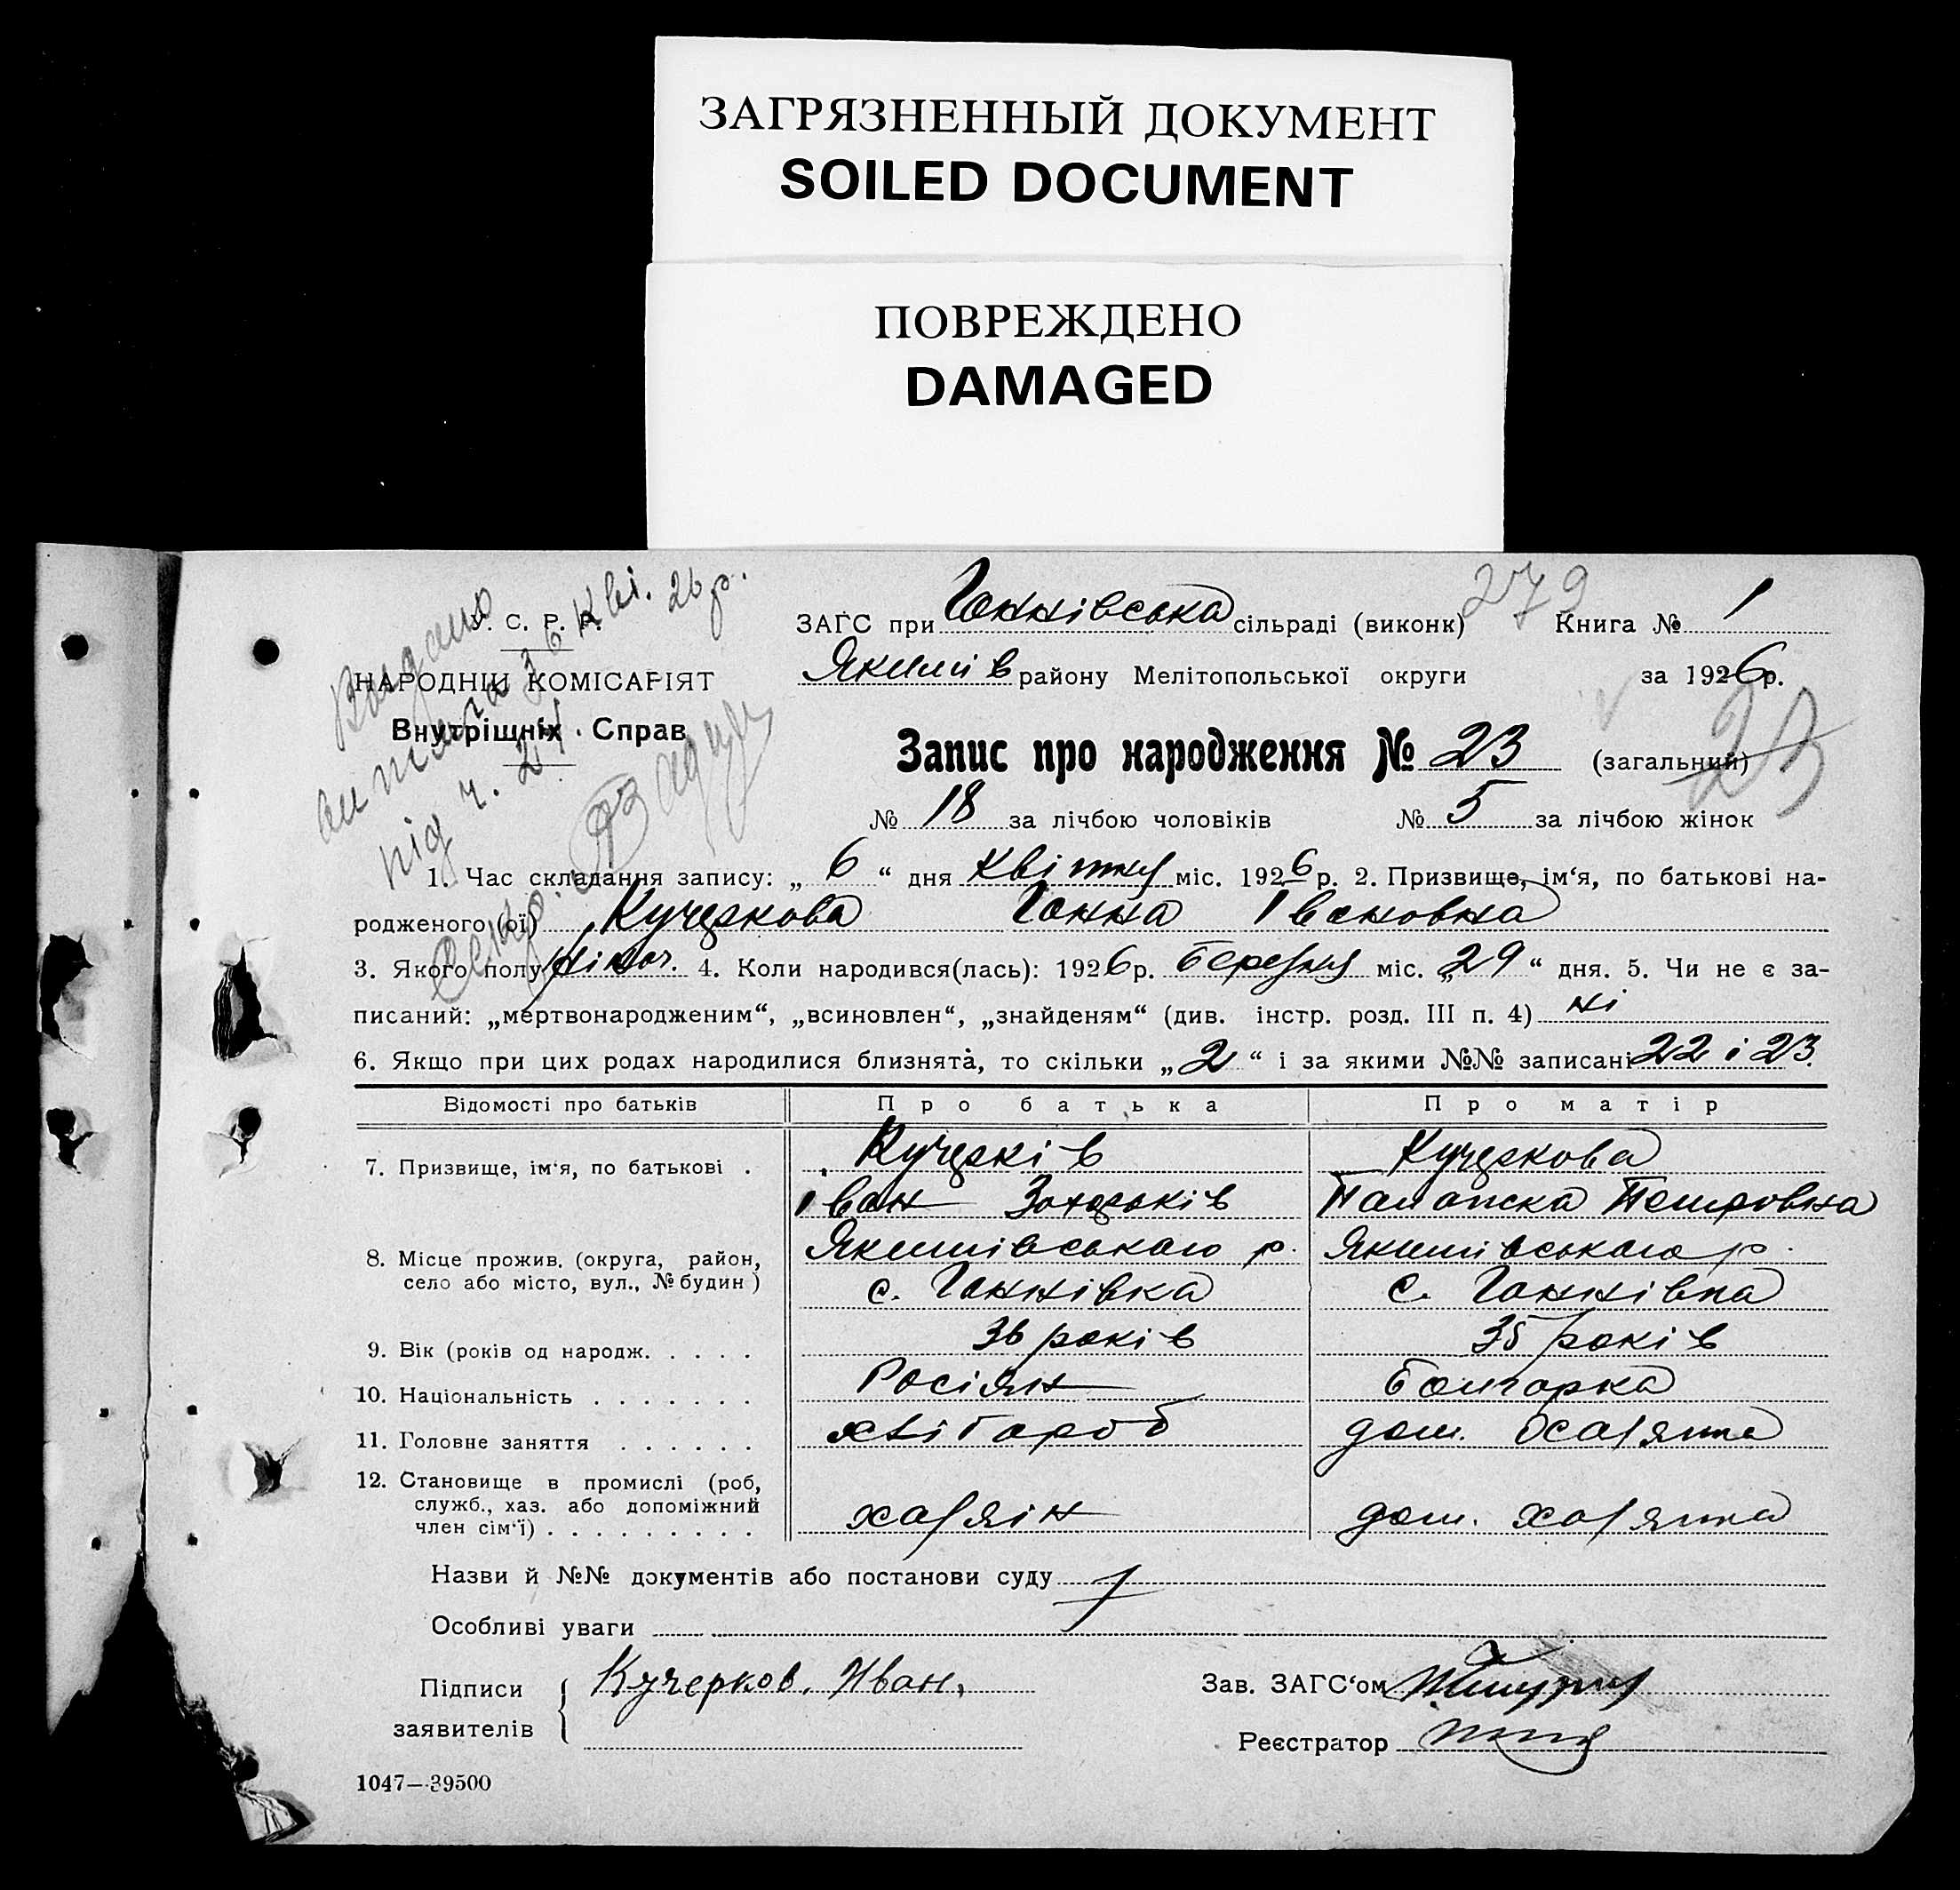 ЗАГРЯЗНЕННЫЙ ДОКУМЕНТ
SOILED DOCUMENT
ПОВРЕЖДЕНО
DAMAGED
279
Видано 6 Кві. 26 р.
під ч. 24
У. С. Р. Р.
НАРОДНІЙ КОМІСАРІЯТ
Внутрішніх Справ
ЗАГС при Ганнівська сільраді (виконк) Книга № 1
Якимів району Мелітопольської округи за 1926 р.
Запис про народження № 23 (загальний) 23
№ 18 за лічбою чоловіків № 5 за лічбою жінок
1. Час складання запису: „ 6 “ дня Квітня міс. 1926 р. 2. Призвище, ім‘я, по батькові на-
родженого (ої) Кучеркова Ганна Івановна
3. Якого полу жіноч. 4. Коли народився(лась): 1926 р. Березня міс. „29“ дня. 5. Чи не є за-
писаний: „мертвонародженим“, „всиновлен“, „знайденям“ (див. інстр. розд. III п. 4) ні
6. Якщо при цих родах народилися близнята, то скільки „2“ і за якими №№ записані 22 і 23.
Відомості про батьків Про батька Про матір
7. Призвище, ім‘я, по батькові . Кучерків Кучеркова
Іван Петровна
8. Місце прожив. (округа, район, Якимівського р. Якимівського р.
село або місто, вул., № будин ) с. Ганнівка с. Ганнівка
9. Вік (років од народж. . . . . 36 років 35 років
10. Національність . . . . . . . Росіян Болгарка
11. Головне заняття . . . . . . хлібороб дом. хазяйка
12. Становище в промислі (роб,
служб., хаз. або допоміжний
член сім‘ї) . . . . . . . . . хазяін дом. хазяйка
Назви й №№ документів або постанови суду
Особливі уваги
Підписи Кучерков. Иван, Зав. ЗАГС‘ом
заявителів Реєстратор
1047—39500